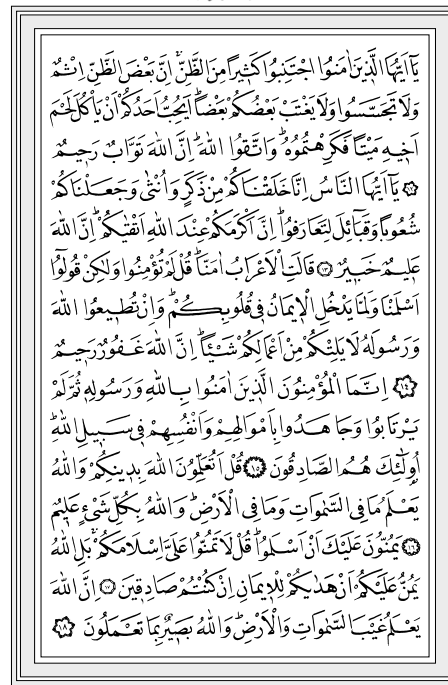 يَٓا اَيُّهَا الَّذ۪ينَ اٰمَنُوا اجْتَنِبُوا كَث۪يراً مِنَ الظَّنِّۘ اِنَّ بَعْضَ الظَّنِّ اِثْمٌ
وَلَا تَجَسَّسُوا وَلَا يَغْتَبْ بَعْضُكُمْ بَعْضاًۜ اَيُحِبُّ اَحَدُكُمْ اَنْ يَأْكُلَ لَحْمَ
اَخ۪يهِ مَيْتاً فَكَرِهْتُمُوهُۜ وَاتَّقُوا اللّٰهَۜ اِنَّ اللّٰهَ تَوَّابٌ رَح۪يمٌ
﴿١٢﴾ يَٓا اَيُّهَا النَّاسُ اِنَّا خَلَقْنَاكُمْ مِنْ ذَكَرٍ وَاُنْثٰى وَجَعَلْنَاكُمْ
شُعُوباً وَقَبَٓائِلَ لِتَعَارَفُواۜ اِنَّ اَكْرَمَكُمْ عِنْدَ اللّٰهِ اَتْقٰيكُمْۜ اِنَّ اللّٰهَ
عَل۪يمٌ خَب۪يرٌ ﴿١٣﴾ قَالَتِ الْاَعْرَابُ اٰمَنَّاۜ قُلْ لَمْ تُؤْمِنُوا وَلٰكِنْ قُولُٓوا
اَسْلَمْنَا وَلَمَّا يَدْخُلِ الْا۪يمَانُ ف۪ي قُلُوبِكُمْۜ وَاِنْ تُط۪يعُوا اللّٰهَ
وَرَسُولَهُ لَا يَلِتْكُمْ مِنْ اَعْمَالِكُمْ شَيْـٔاًۜ اِنَّ اللّٰهَ غَفُورٌ رَح۪يمٌ
﴿١٤﴾ اِنَّمَا الْمُؤْمِنُونَ الَّذ۪ينَ اٰمَنُوا بِاللّٰهِ وَرَسُولِه۪ ثُمَّ لَمْ
يَرْتَابُوا وَجَاهَدُوا بِاَمْوَالِهِمْ وَاَنْفُسِهِمْ ف۪ي سَب۪يلِ اللّٰهِۜ
اُو۬لٰٓئِكَ هُمُ الصَّادِقُونَ ﴿١٥﴾ قُلْ اَتُعَلِّمُونَ اللّٰهَ بِد۪ينِكُمْ وَاللّٰهُ
يَعْلَمُ مَا فِي السَّمٰوَاتِ وَمَا فِي الْاَرْضِۜ وَاللّٰهُ بِكُلِّ شَيْءٍ عَل۪يمٌ
﴿١٦﴾ يَمُنُّونَ عَلَيْكَ اَنْ اَسْلَمُواۜ قُلْ لَا تَمُنُّوا عَلَيَّ اِسْلَامَكُمْۚ بَلِ اللّٰهُ
يَمُنُّ عَلَيْكُمْ اَنْ هَدٰيكُمْ لِلْا۪يمَانِ اِنْ كُنْتُمْ صَادِق۪ينَ ﴿١٧﴾ اِنَّ اللّٰهَ
يَعْلَمُ غَيْبَ السَّمٰوَاتِ وَالْاَرْضِۜ وَاللّٰهُ بَص۪يرٌ بِمَا تَعْمَلُونَ ﴿١٨﴾